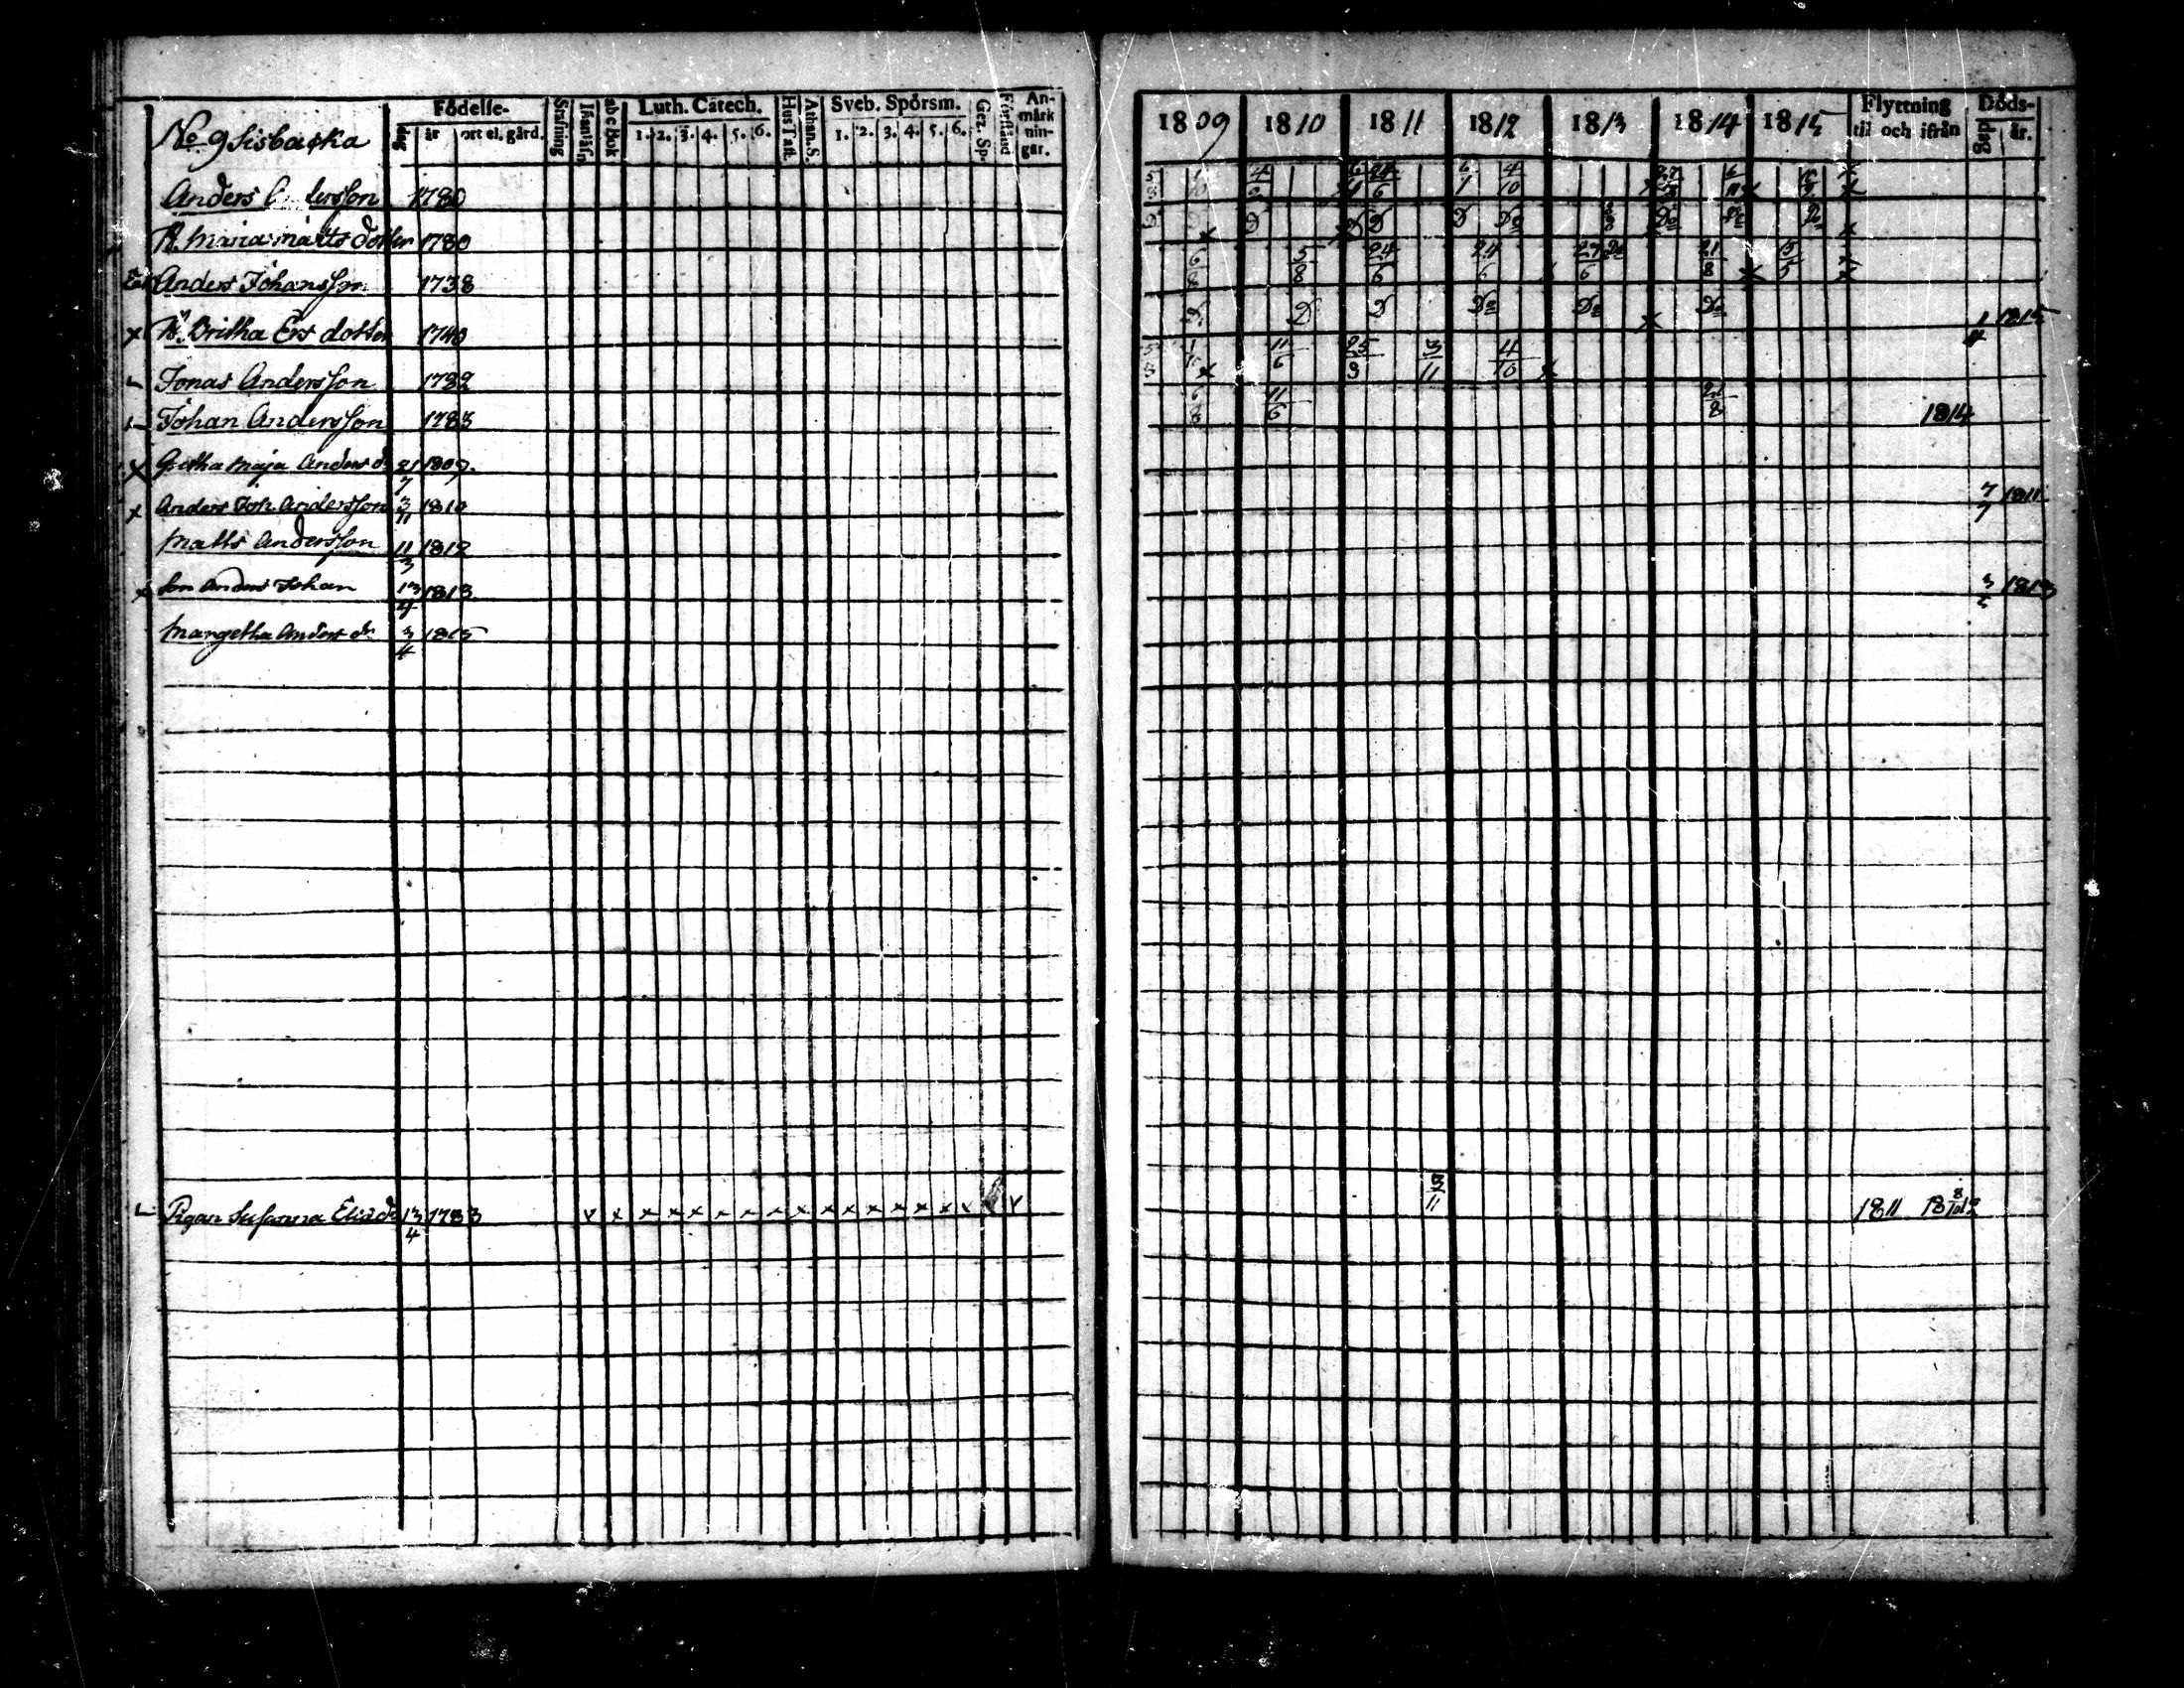 No 9 Sisbacka
Födelse-
dag år ort el. gård.
Stafning Innanläsn. abc bok Luth. Catech. 1. 2. 3. 4. 5. 6. Hus Tafl. Athan. S. Sveb. Spörsm. 1. 2. 3. 4. 5. 6. Gez. Sp. Förstånd An-märk-nin-gar.
Anders Andersson 1780
H. Maria Matts dotter 1780
Anders Johansson 1738
x H. Britha Ers dotter 1740
Jonas Andersson 1782
Johan Andersson 1783
x Gretha Maja Anders dr 21/7 1809
x Anders Joh. Andersson 3/11 1810
Matts Andersson 11/3 1812
x Son Anders Johan 13/4 1813
Margetha Anders dr 3/4 1815
Pigan Susanna Elias dr 13/4 1783 v x x x x x x x x x x x x x x x v
1809 1810 1811 1812 1813 1814 1815 Flyttning til och ifrån Döds- dag år.
4 6 24/6 6/1 4/10 x 6/11 x x
D D D D Do Do Do Do x
6/8 5/8 24/6 24/6 27/6 Do 21/8 x 5/5 x
D D D Do Do x Do 1815
x 11/6 25 3/11 4/10 x
6/8 11/6 1814
7/7 1811
1813
3/11 1811 18 8/10 12